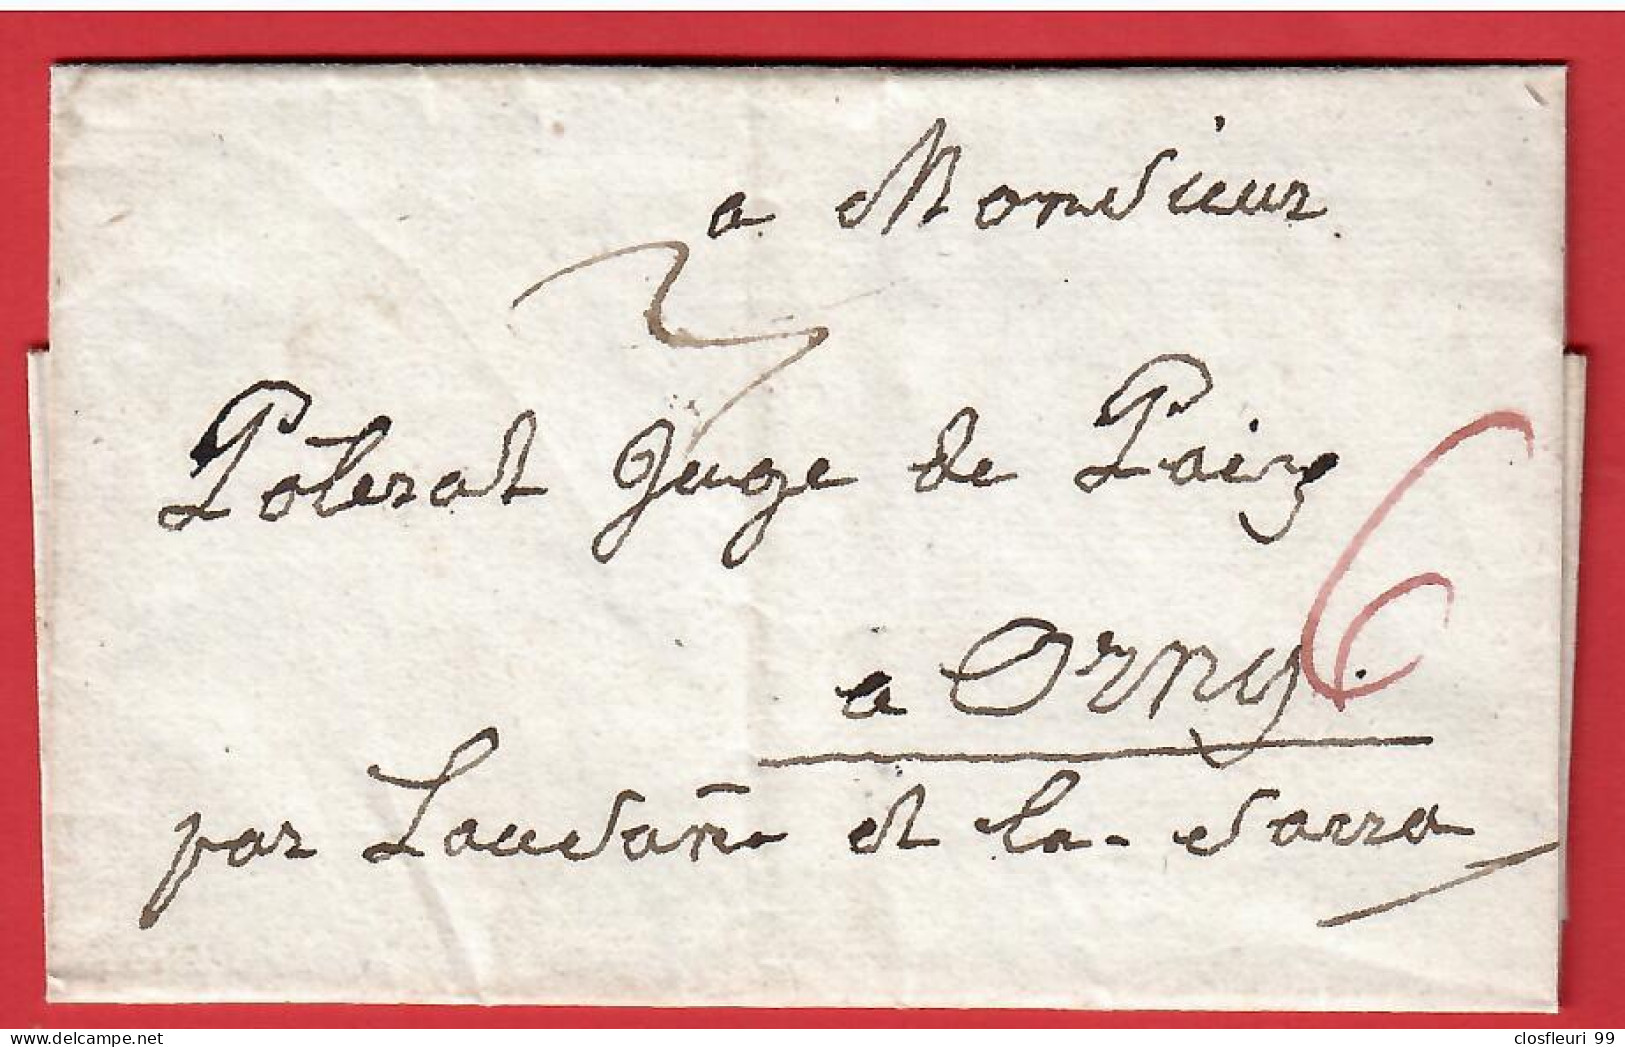 a Monsieur
Polerat Juge de Paix
a Orny
6
par Lausañ et la Sarra
delcampe.net
closfleuri 99